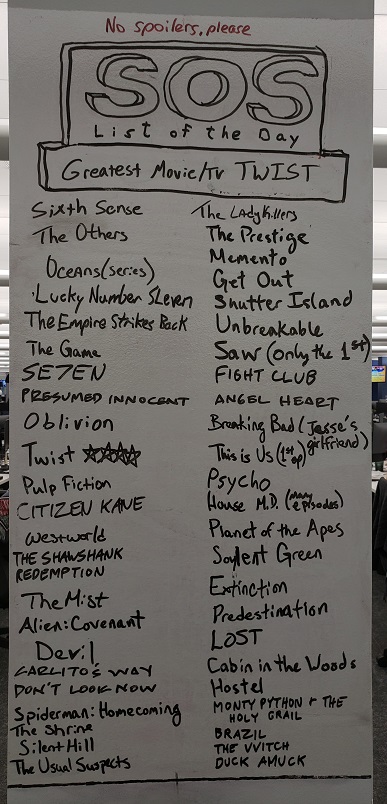 No spoilers, please
SOS
List of the Day
Greatest Movie/TV TWIST
Sixth Sense
The Others
Oceans (series)
Lucky Number Sleven
The Empire Strikes Back
The Game
SE7EN
PRESUMED INNOCENT
Oblivion
Twist
Pulp Fiction
CITIZEN KANE
Westworld
THE SHAWSHANK
REDEMPTION
The Mist
Alien: Covenant
Devil
CARLITO'S WAY
DON'T LOOK NOW
Spiderman: Homecoming
The Shrine
Silent Hill
The Usual Suspects
The Ladykillers
The Prestige
Memento
Get Out
Shutter Island
Unbreakable
Saw (only the 1st)
FIGHT CLUB
ANGEL HEART
Breaking Bad (Jesse's
girlfriend)
This is Us (1st ep)
Psycho
House M.D. (many
episodes)
Planet of the Apes
Soylent Green
Extinction
Predestination
LOST
Cabin in the Woods
Hostel
MONTY PYTHON + THE
HOLY GRAIL
BRAZIL
THE VVITCH
DUCK AMUCK